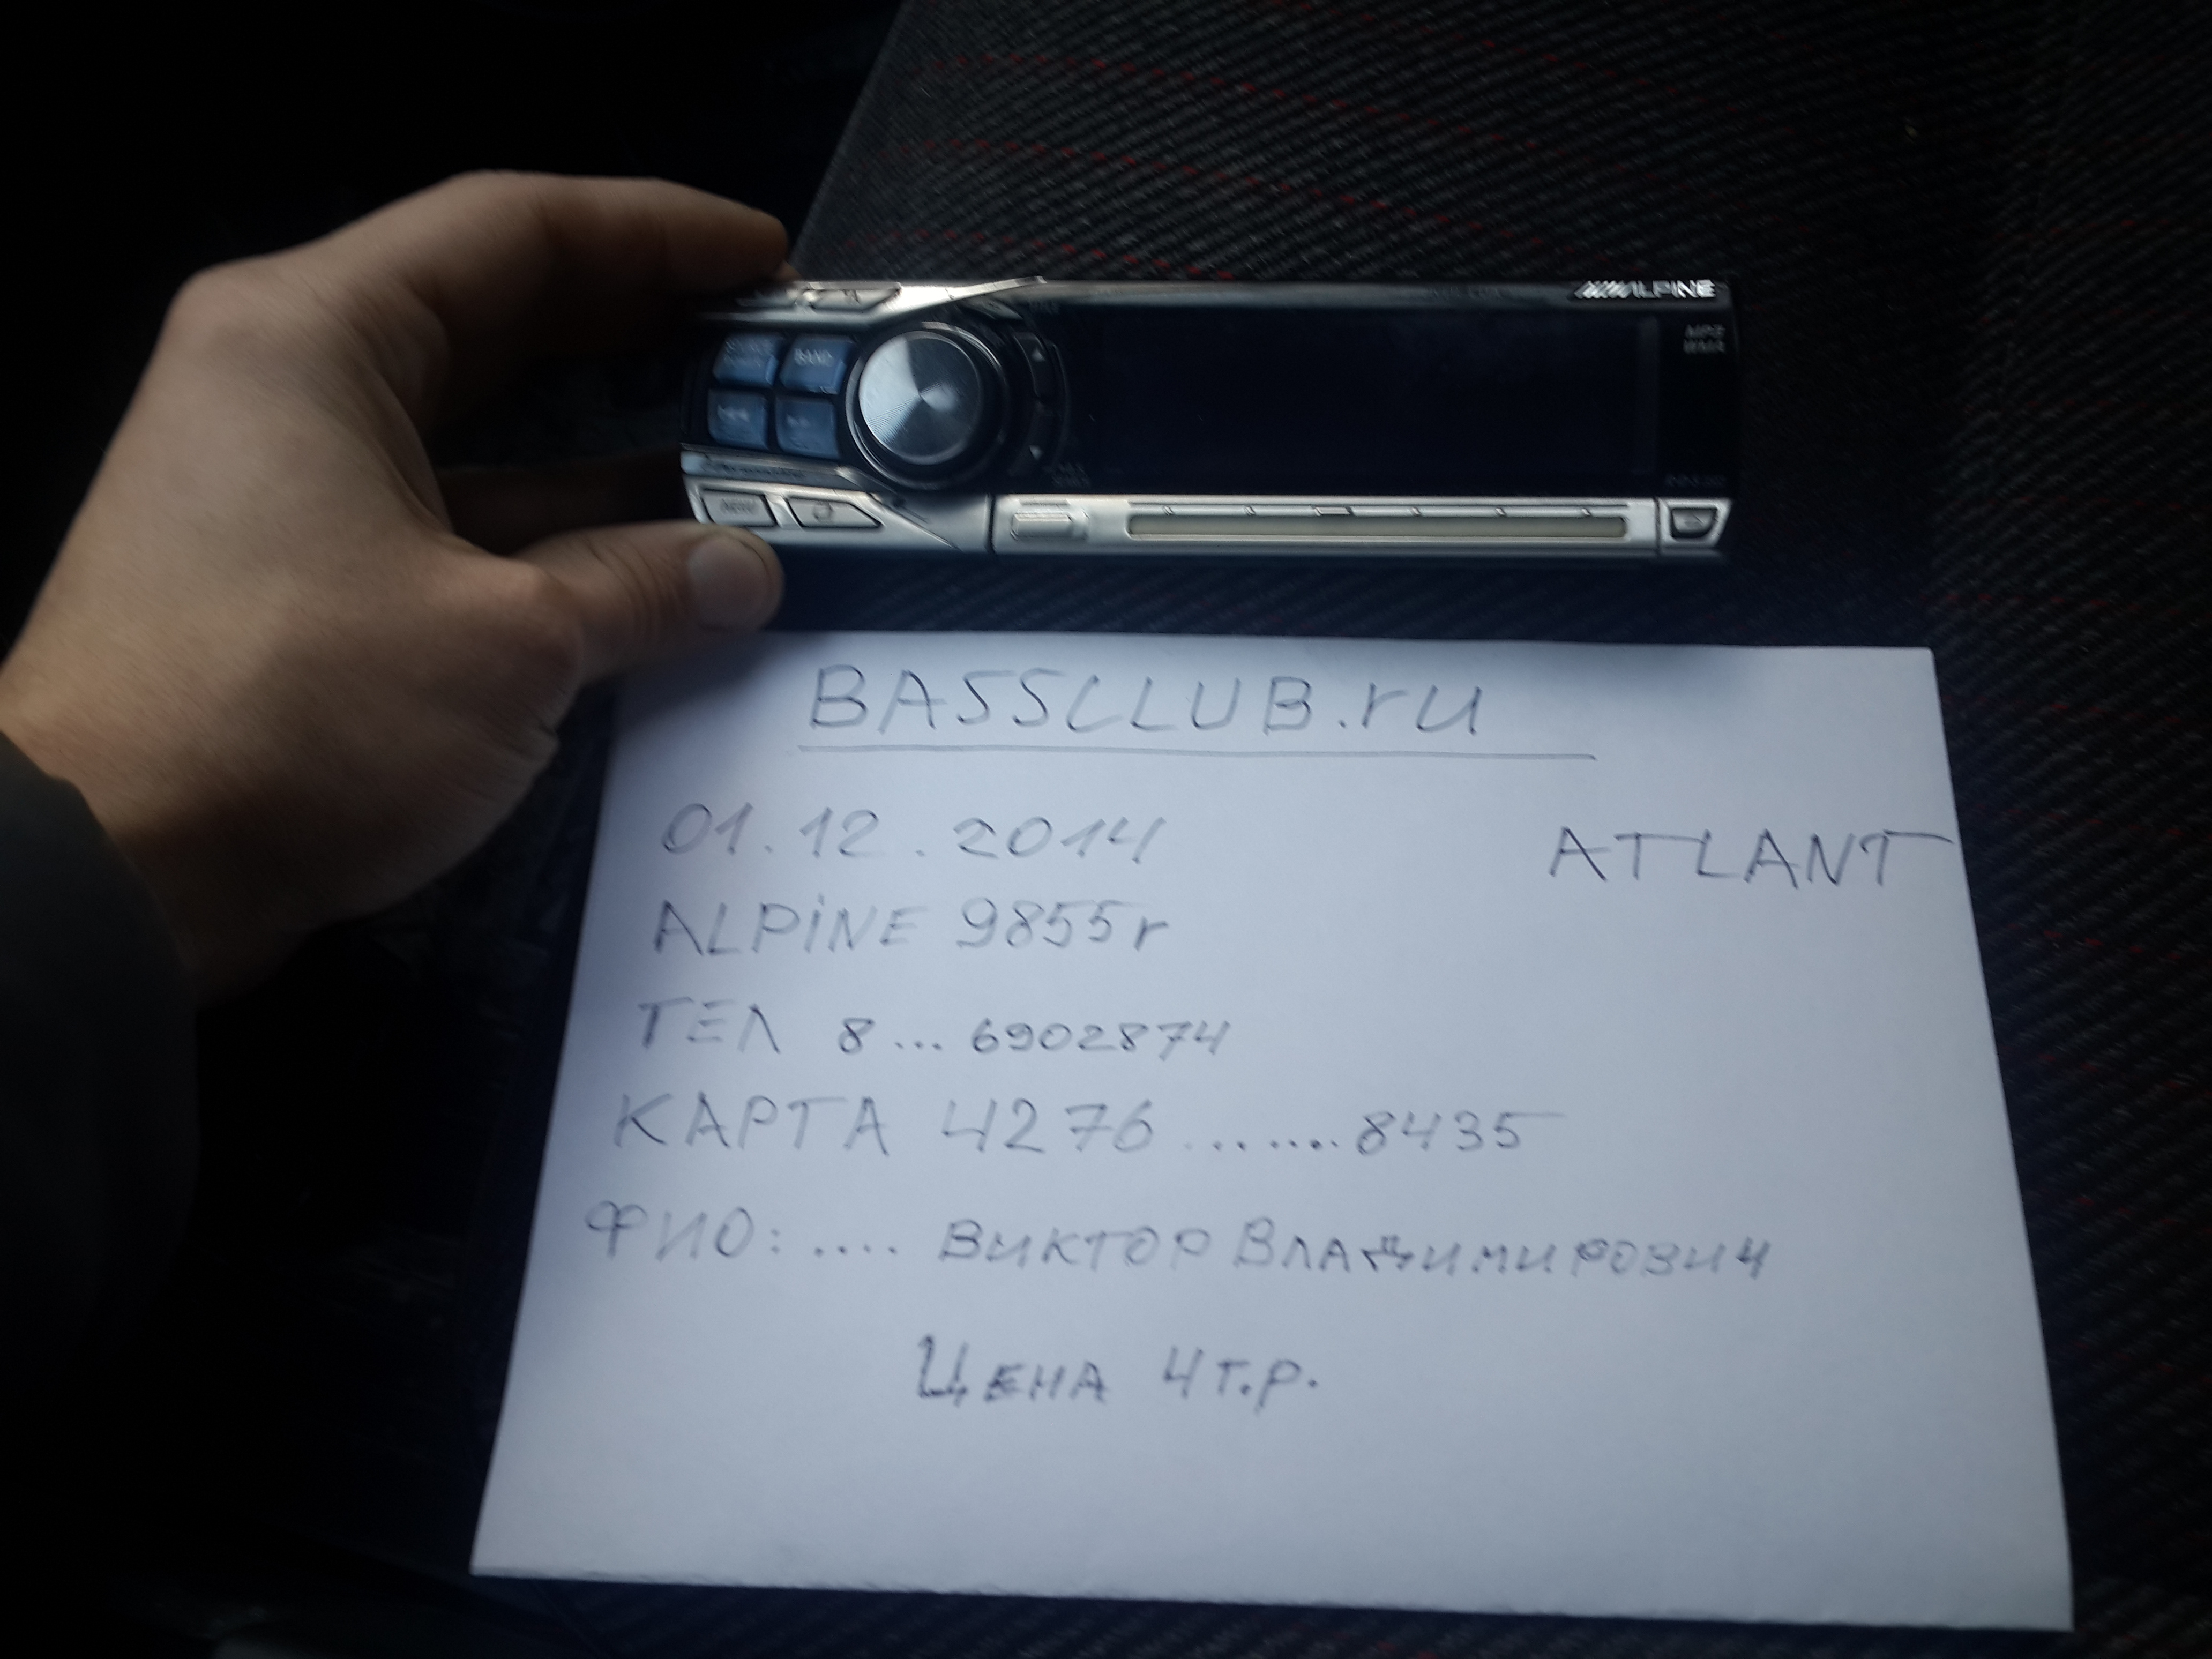 ALPINE
BAND
MENU
BASSCLUB.ru
01.12.2014
ATLANT
ALPiNE 9855r
ТЕЛ 8... 6902874
КАРТА 4276.......8435
ФИО: .... Виктор Владимирович
Цена 4т.р.